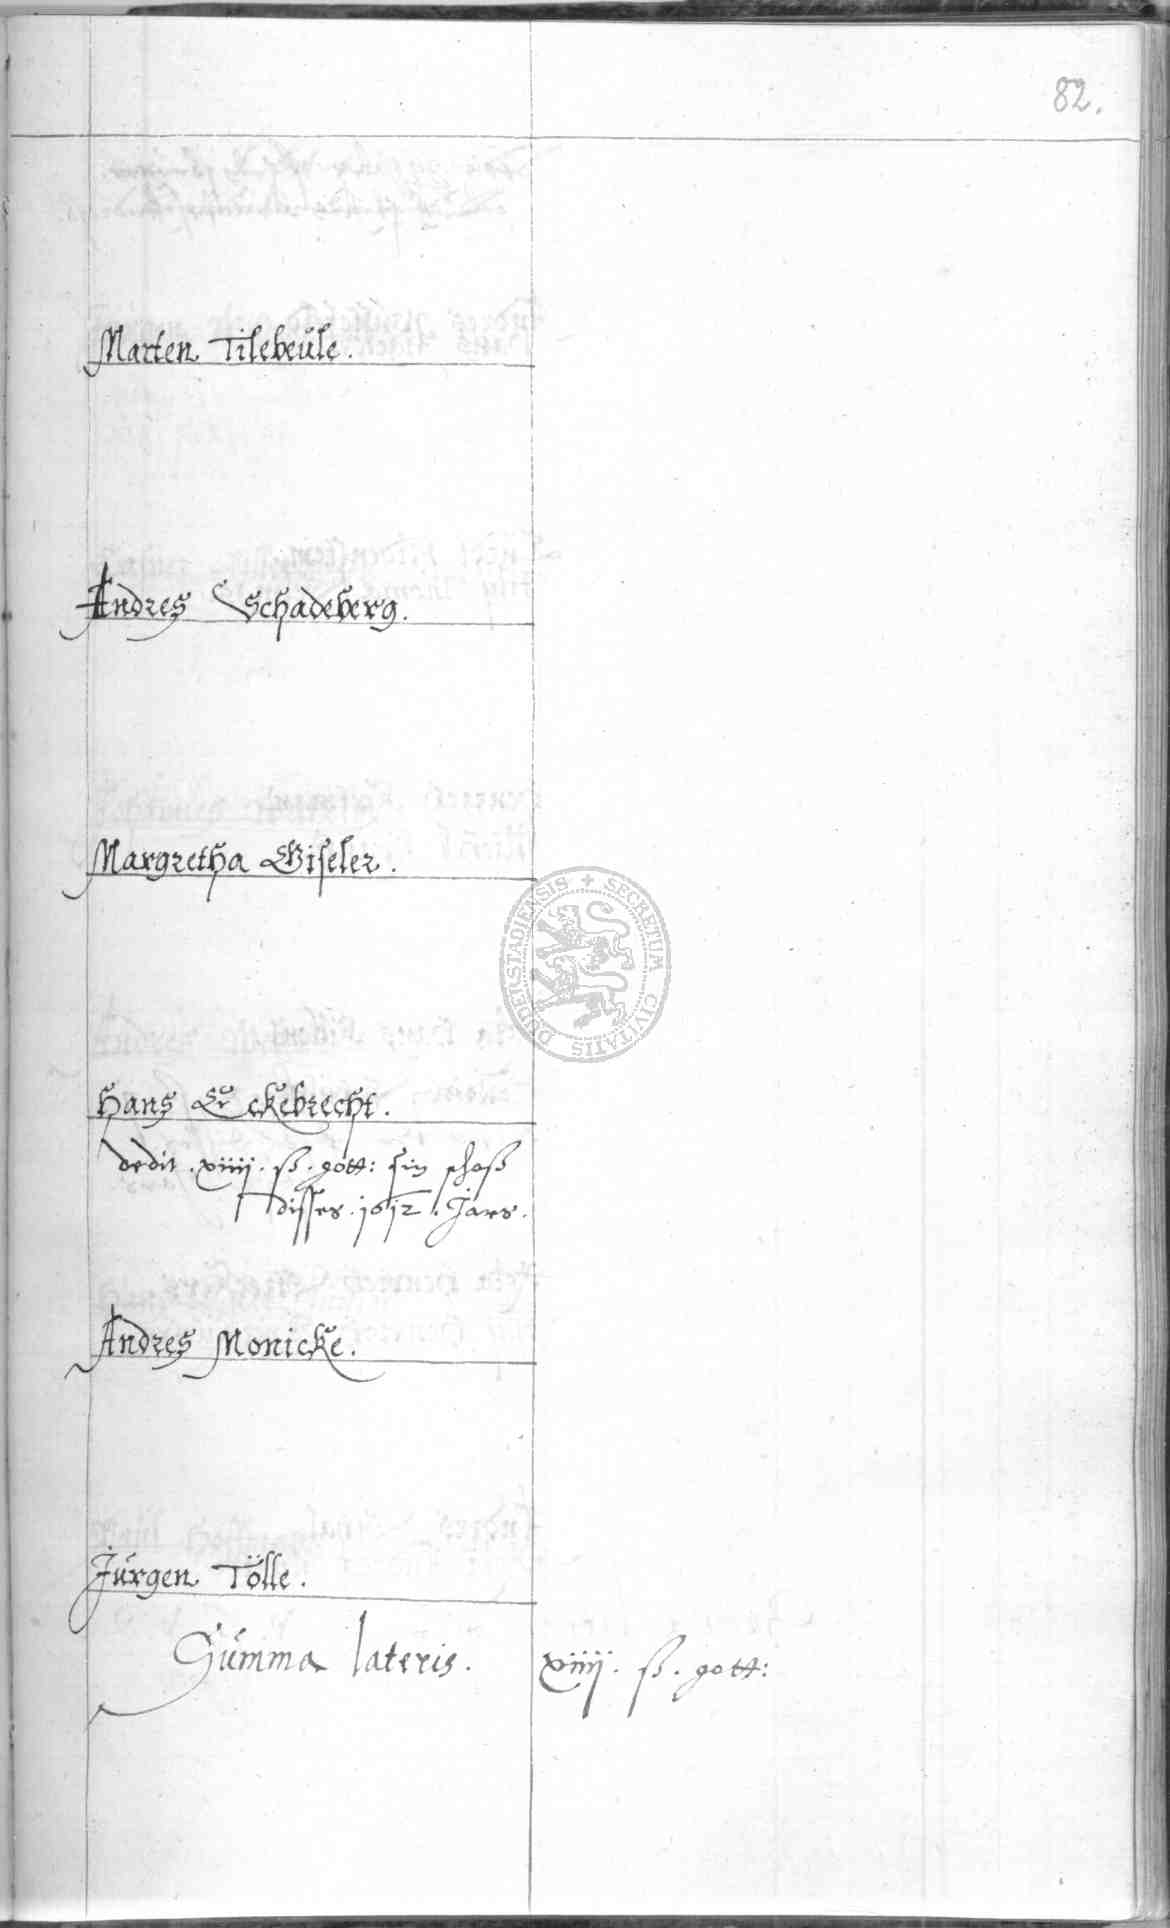 82.
Marten Tilebeule.
Andres Schadeberg.
Margretha Giseler.
SECRETUM CIVITATIS DUDERSTADIENSIS
Hans Eckebrecht.
dedit .xiiij. ß. gott: sin schoß
disses .1612. Jars.
Andres Monicke.
Jürgen Tölle.
Summa lateris. xiiij. ß. gott: